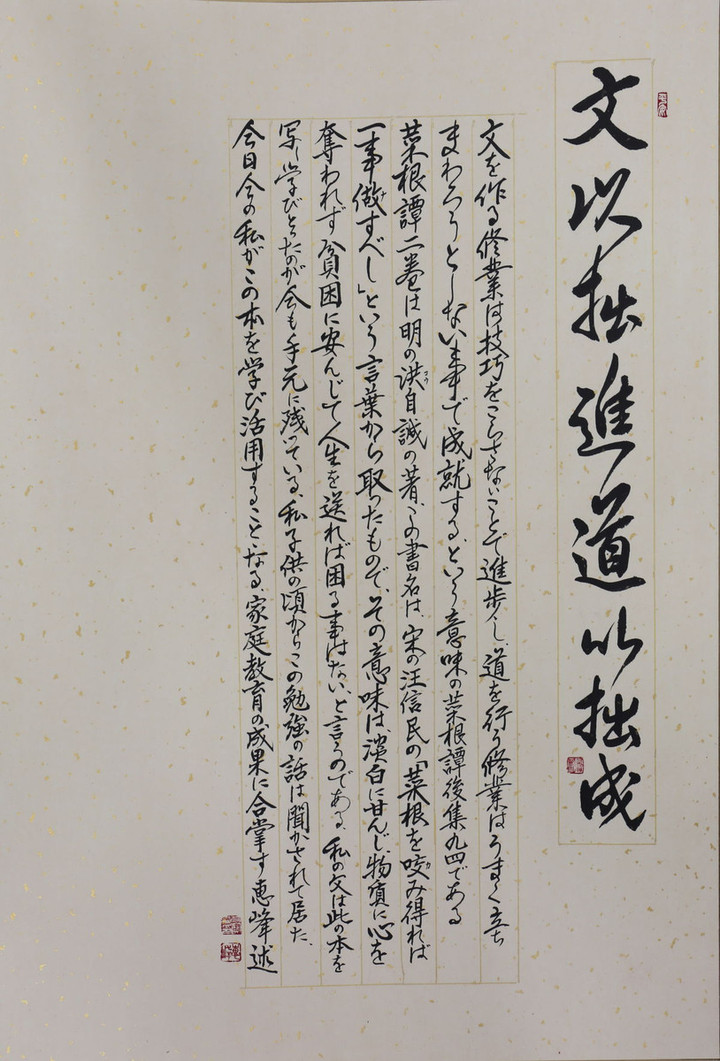 文以拙進道以拙成
文を作る修業は技巧をこらさないことで進歩し、道を行う修業はうまく立ち
まわろうとしない事で成就する、という意味の菜根譚後集九四である
菜根譚二巻は明の洪自誠の著、この書名は、宋の汪信民の「菜根を咬み得れば
一事做すべし」という言葉から取ったもので、その意味は、淡白に甘んじ、物質に心を
奪われず貧困に安んじて人生を送れば困る事はない、と言うのである、私の父は此の本を
写し学びとったのが今も手元に残っている、私子供の頃からこの勉強の話は聞かされて居た、
今日今の私がこの本を学び活用することゝなる、家庭教育の成果に合掌す 恵峰述